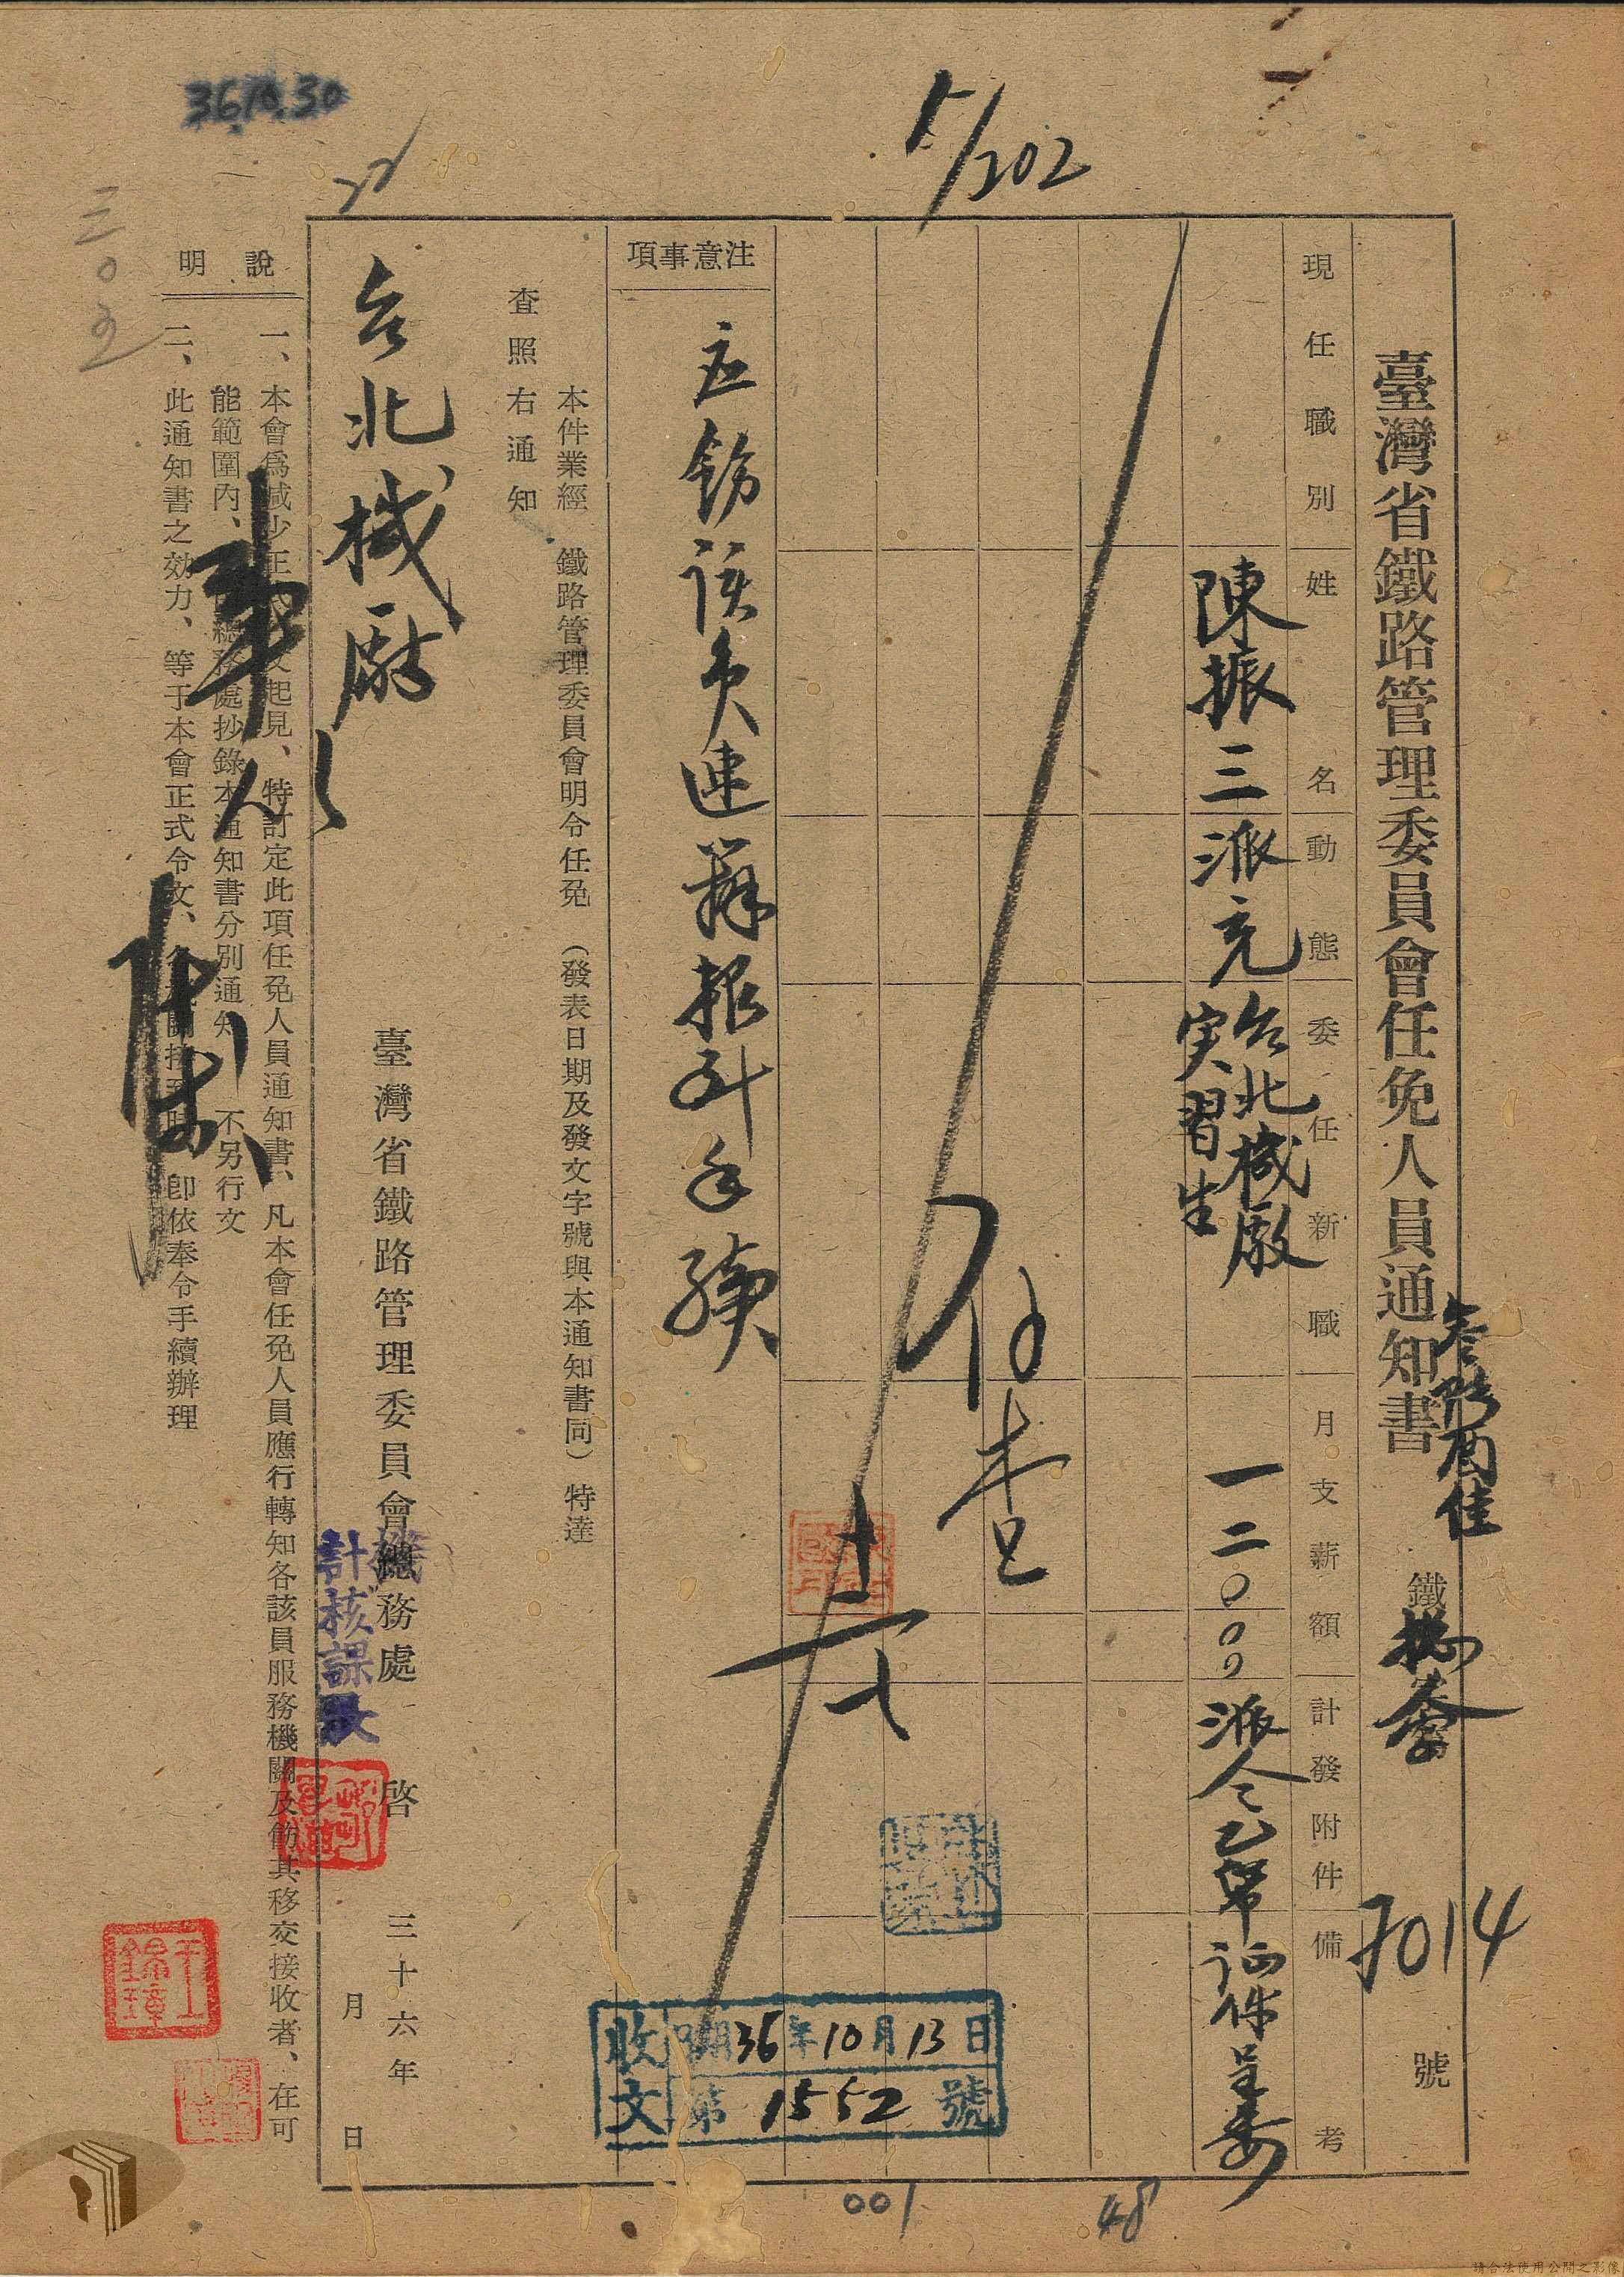 36.10.30
5/202
臺灣省鐵路管理委員會任免人員通知書
鐵
7014
號
現任職別
姓名
動態
委任新職
月支薪額
計發附件
備考
陳振三
派充
台北機廠
実習生
一二〇〇〇
派令乙帋
証保呈委
注意事項
应飭該員速辦報到手續
本件業經 鐵路管理委員會明令任免 (發表日期及發文字號與本通知書同) 特達
查照右通知
台北機廠
臺灣省鐵路管理委員會總務處 啓
三十六年
月 日
計核課長
收文
日期36年10月13日
第1552號
說明
一、本會爲減少正式令文起見、特訂定此項任免人員通知書、凡本會任免人員應行轉知各該員服務機關及飭其移交接收者、在可
能範圍內、由總務處抄錄本通知書分別通知 不另行文
二、此通知書之効力、等于本會正式令文、各機關接到時 卽依奉令手續辦理
王錦璋
001
48
請合法使用公開之影像